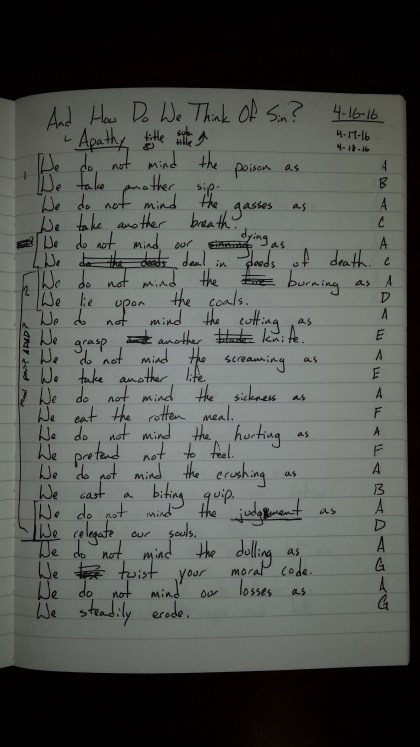 And How Do We Think Of Sin? 4-16-16
Apathy title sub title 4-17-16
4-18-16
1 We do not mind the poison as A
We take another sip. B
We do not mind the gasses as A
We take another breath. C
We do not mind our dying as A
We do the deeds deal in deeds of death. C
2 We do not mind the burning as A
We lie upon the coals. D
We do not mind the cutting as A
We grasp another blade knife. E
We do not mind the screaming as A
We take another life. E
We do not mind the sickness as A
We eat the rotten meal. F
We do not mind the hurting as A
We pretend not to feel. F
We do not mind the crushing as A
We cast a biting quip. B
We do not mind the judgement as A
We relegate our souls. D
We do not mind the dulling as A
We twist your moral code. G
We do not mind our losses as A
We steadily erode. G